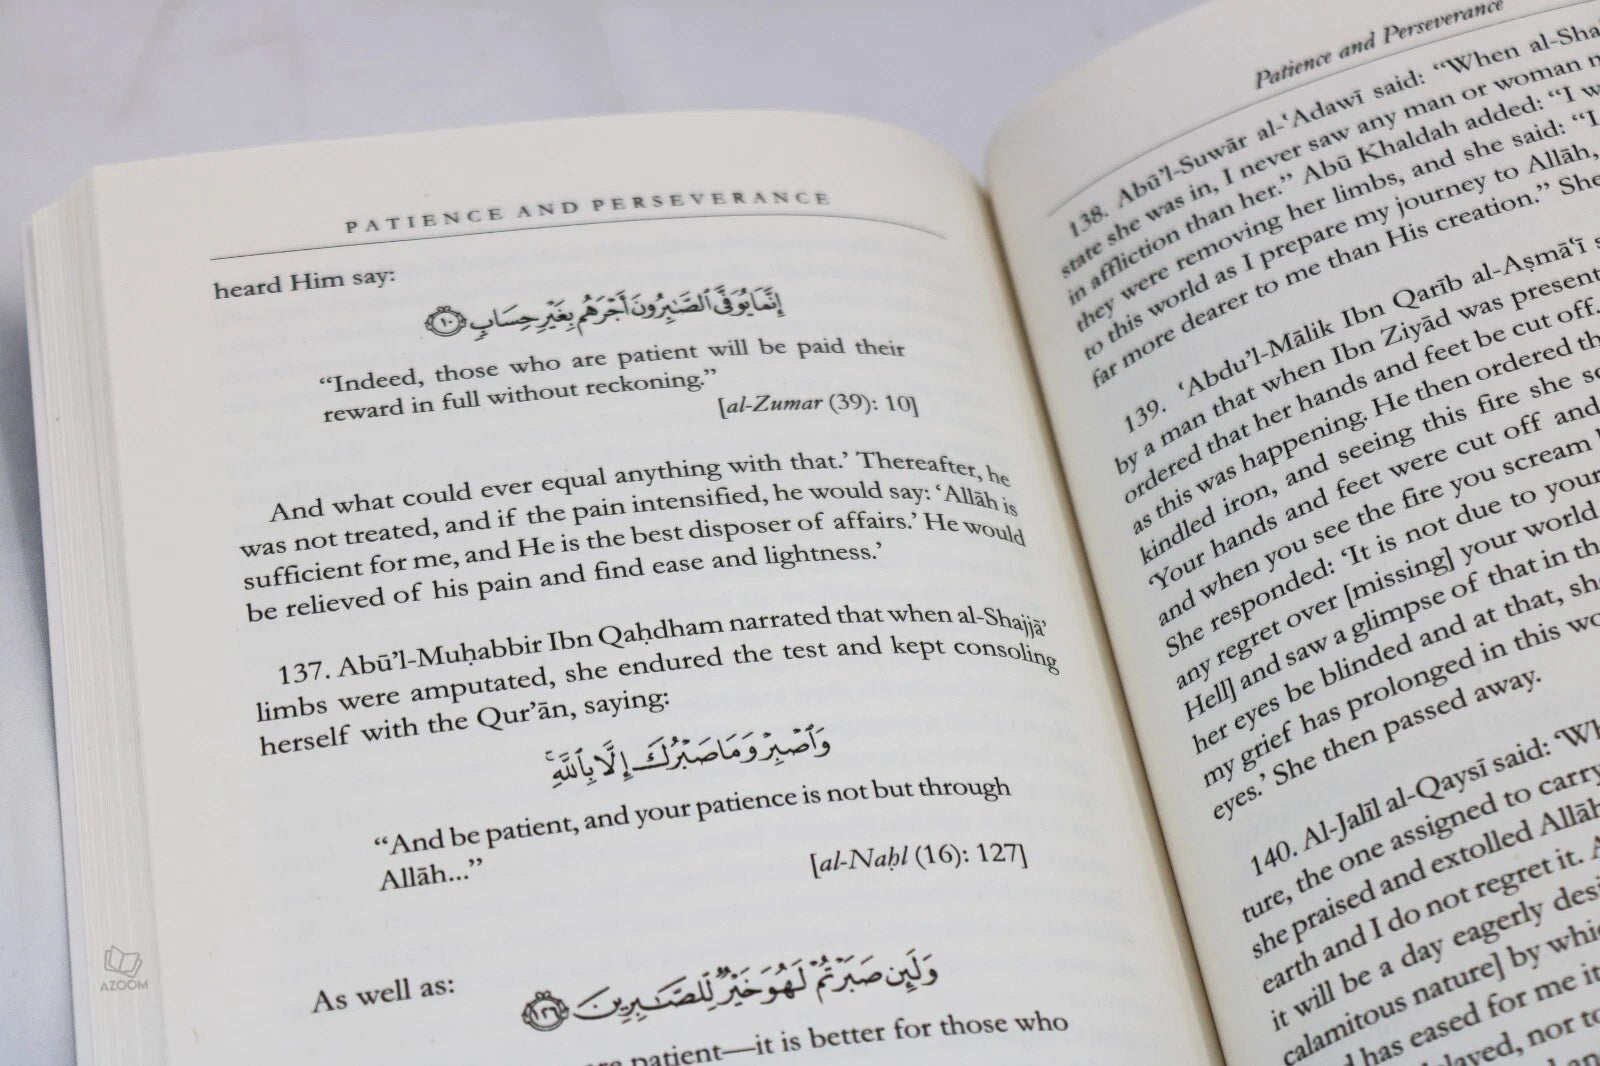 PATIENCE AND PERSEVERANCE
heard Him say:
إِنَّمَا يُوَفَّى ٱلصَّـٰبِرُونَ أَجْرَهُم بِغَيْرِ حِسَابٍ ١٠
“Indeed, those who are patient will be paid their
reward in full without reckoning.”
[al-Zumar (39): 10]
And what could ever equal anything with that.’ Thereafter, he
was not treated, and if the pain intensified, he would say: ‘Allāh is
sufficient for me, and He is the best disposer of affairs.’ He would
be relieved of his pain and find ease and lightness.’
137. Abū’l-Muḥabbir Ibn Qaḥdham narrated that when al-Shajjā’
limbs were amputated, she endured the test and kept consoling
herself with the Qur’ān, saying:
وَٱصْبِرْ وَمَا صَبْرُكَ إِلَّا بِٱللَّهِۚ
“And be patient, and your patience is not but through
Allāh...”
[al-Naḥl (16): 127]
As well as:
وَلَئِن صَبَرْتُمْ لَهُوَ خَيْرٌ لِّلصَّـٰبِرِينَ ١٢٦
are patient—it is better for those who
Patience and Perseverance
138. Abū’l-Suwār al-‘Adawī said: “When al-Sha
state she was in, I never saw any man or woman
in affliction than her.” Abū Khaldah added: “I
they were removing her limbs, and she said: “I
to this world as I prepare my journey to Allāh,
far more dearer to me than His creation.” She
139. ‘Abdu’l-Mālik Ibn Qarīb al-Aṣmā‘ī
by a man that when Ibn Ziyād was present
ordered that her hands and feet be cut off.
as this was happening. He then ordered
kindled iron, and seeing this fire she
‘Your hands and feet were cut off and
and when you see the fire you scream
She responded: ‘It is not due to your
any regret over [missing] your world
Hell] and saw a glimpse of that in
her eyes be blinded and at that, she
my grief has prolonged in this
eyes.’ She then passed away.
140. Al-Jalīl al-Qaysī said:
ture, the one assigned to carry
she praised and extolled Allāh
earth and I do not regret it.
it will be a day eagerly
calamitous nature] by
has eased for me
nor to
AZOOM